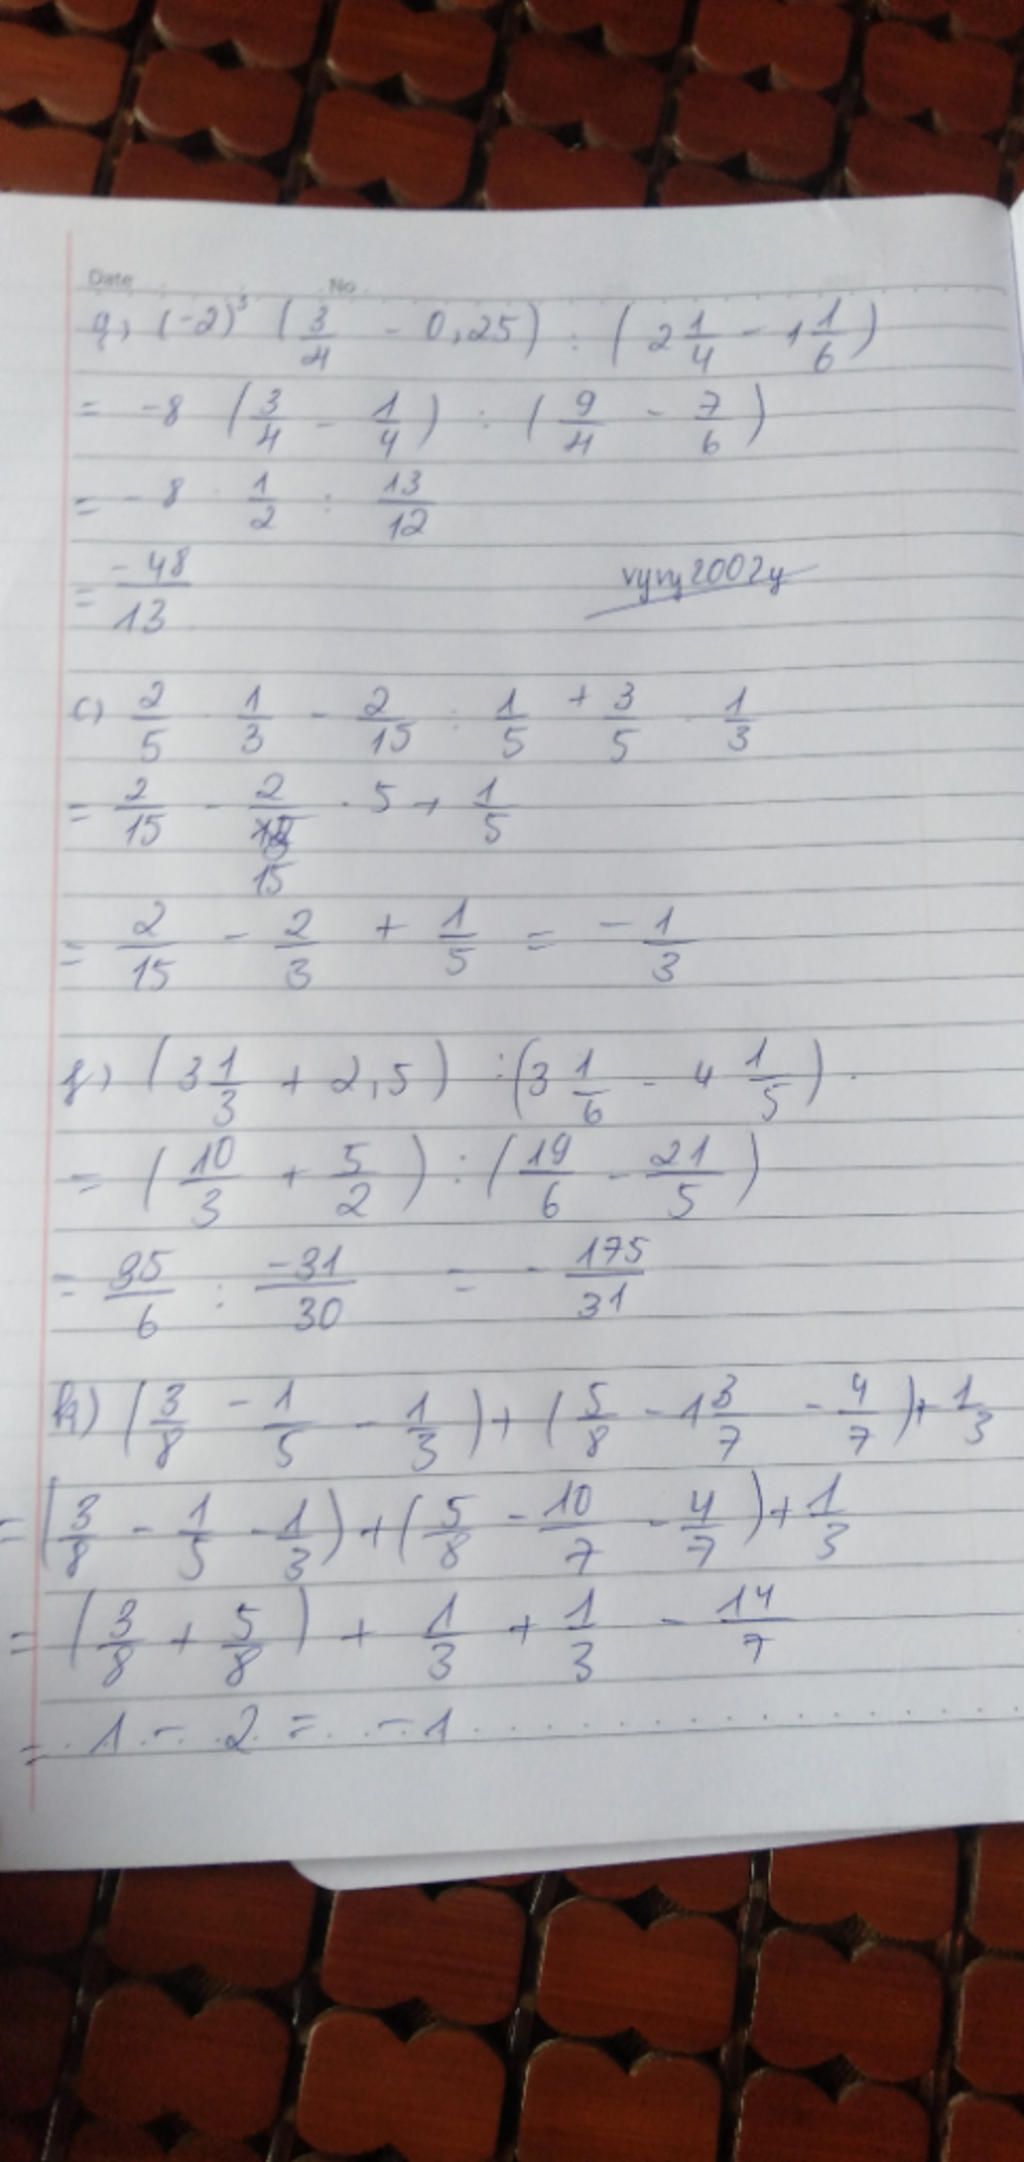 Date No.
g, (-2)³ (3/4 - 0,25) : (2 1/4 - 1 1/6)
= -8 (3/4 - 1/4) : (9/4 - 7/6)
= -8 · 1/2 : 13/12
= -48/13
vyvy2002y
c) 2/5 · 1/3 - 2/15 : 1/5 + 3/5 · 1/3
= 2/15 - 2/15 · 5 + 1/5
= 2/15 - 2/3 + 1/5 = -1/3
f) (3 1/3 + 2,5) : (3 1/6 - 4 1/5)
= (10/3 + 5/2) : (19/6 - 21/5)
= 35/6 : -31/30 = -175/31
h) (3/8 - 1/5 - 1/3) + (5/8 - 1 3/7 - 4/7) + 1/3
= (3/8 - 1/5 - 1/3) + (5/8 - 10/7 - 4/7) + 1/3
= (3/8 + 5/8) + 1/3 + 1/3 - 14/7
= 1 - 2 = -1